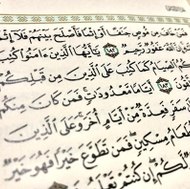 مِن مُّوصٍ جَنَفًا أَوْ إِثْمًا فَأَصْلَحَ بَيْنَهُمْ فَلَآ إِثْمَ
غَفُورٌ رَّحِيمٌ ١٨٢ يَٰٓأَيُّهَا ٱلَّذِينَ ءَامَنُوا۟ كُتِبَ
ٱلصِّيَامُ كَمَا كُتِبَ عَلَى ٱلَّذِينَ مِن قَبْلِكُمْ
١٨٣ أَيَّامًا مَّعْدُودَٰتٍ فَمَن كَانَ مِنكُم
سَفَرٍ فَعِدَّةٌ مِّنْ أَيَّامٍ أُخَرَ وَعَلَى ٱلَّذِينَ
طَعَامُ مِسْكِينٍ فَمَن تَطَوَّعَ خَيْرًا فَهُوَ خَيْرٌ
لَّكُمْ إِن كُنتُمْ تَعْلَمُونَ